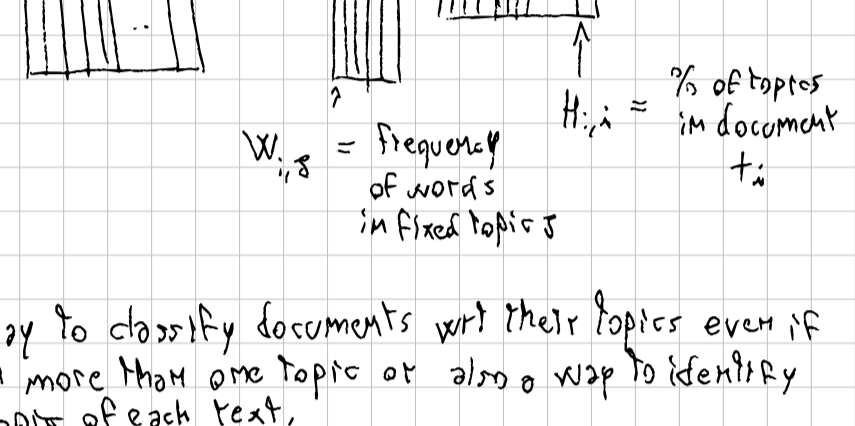 W:,s = frequency
of words
in fixed topic s
H:,i = % of topics
in document
ti
ay to classify documents wrt their topics even if
more than one topic or also a way to identify
of each text.